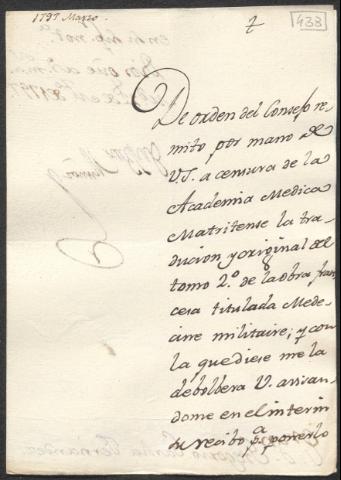 1797 Marzo
433
De orden del Consejo re-
mito por mano de
V.S. a censura de la
Academia Medica
Matritense la tra-
ducion, y original del
tomo 2.º de la obra fran-
cesa titulada Mede-
cine militaire; y con
la que diese me la
debolbera V. avisan-
dome en el interin
su recibo pª. ponerlo